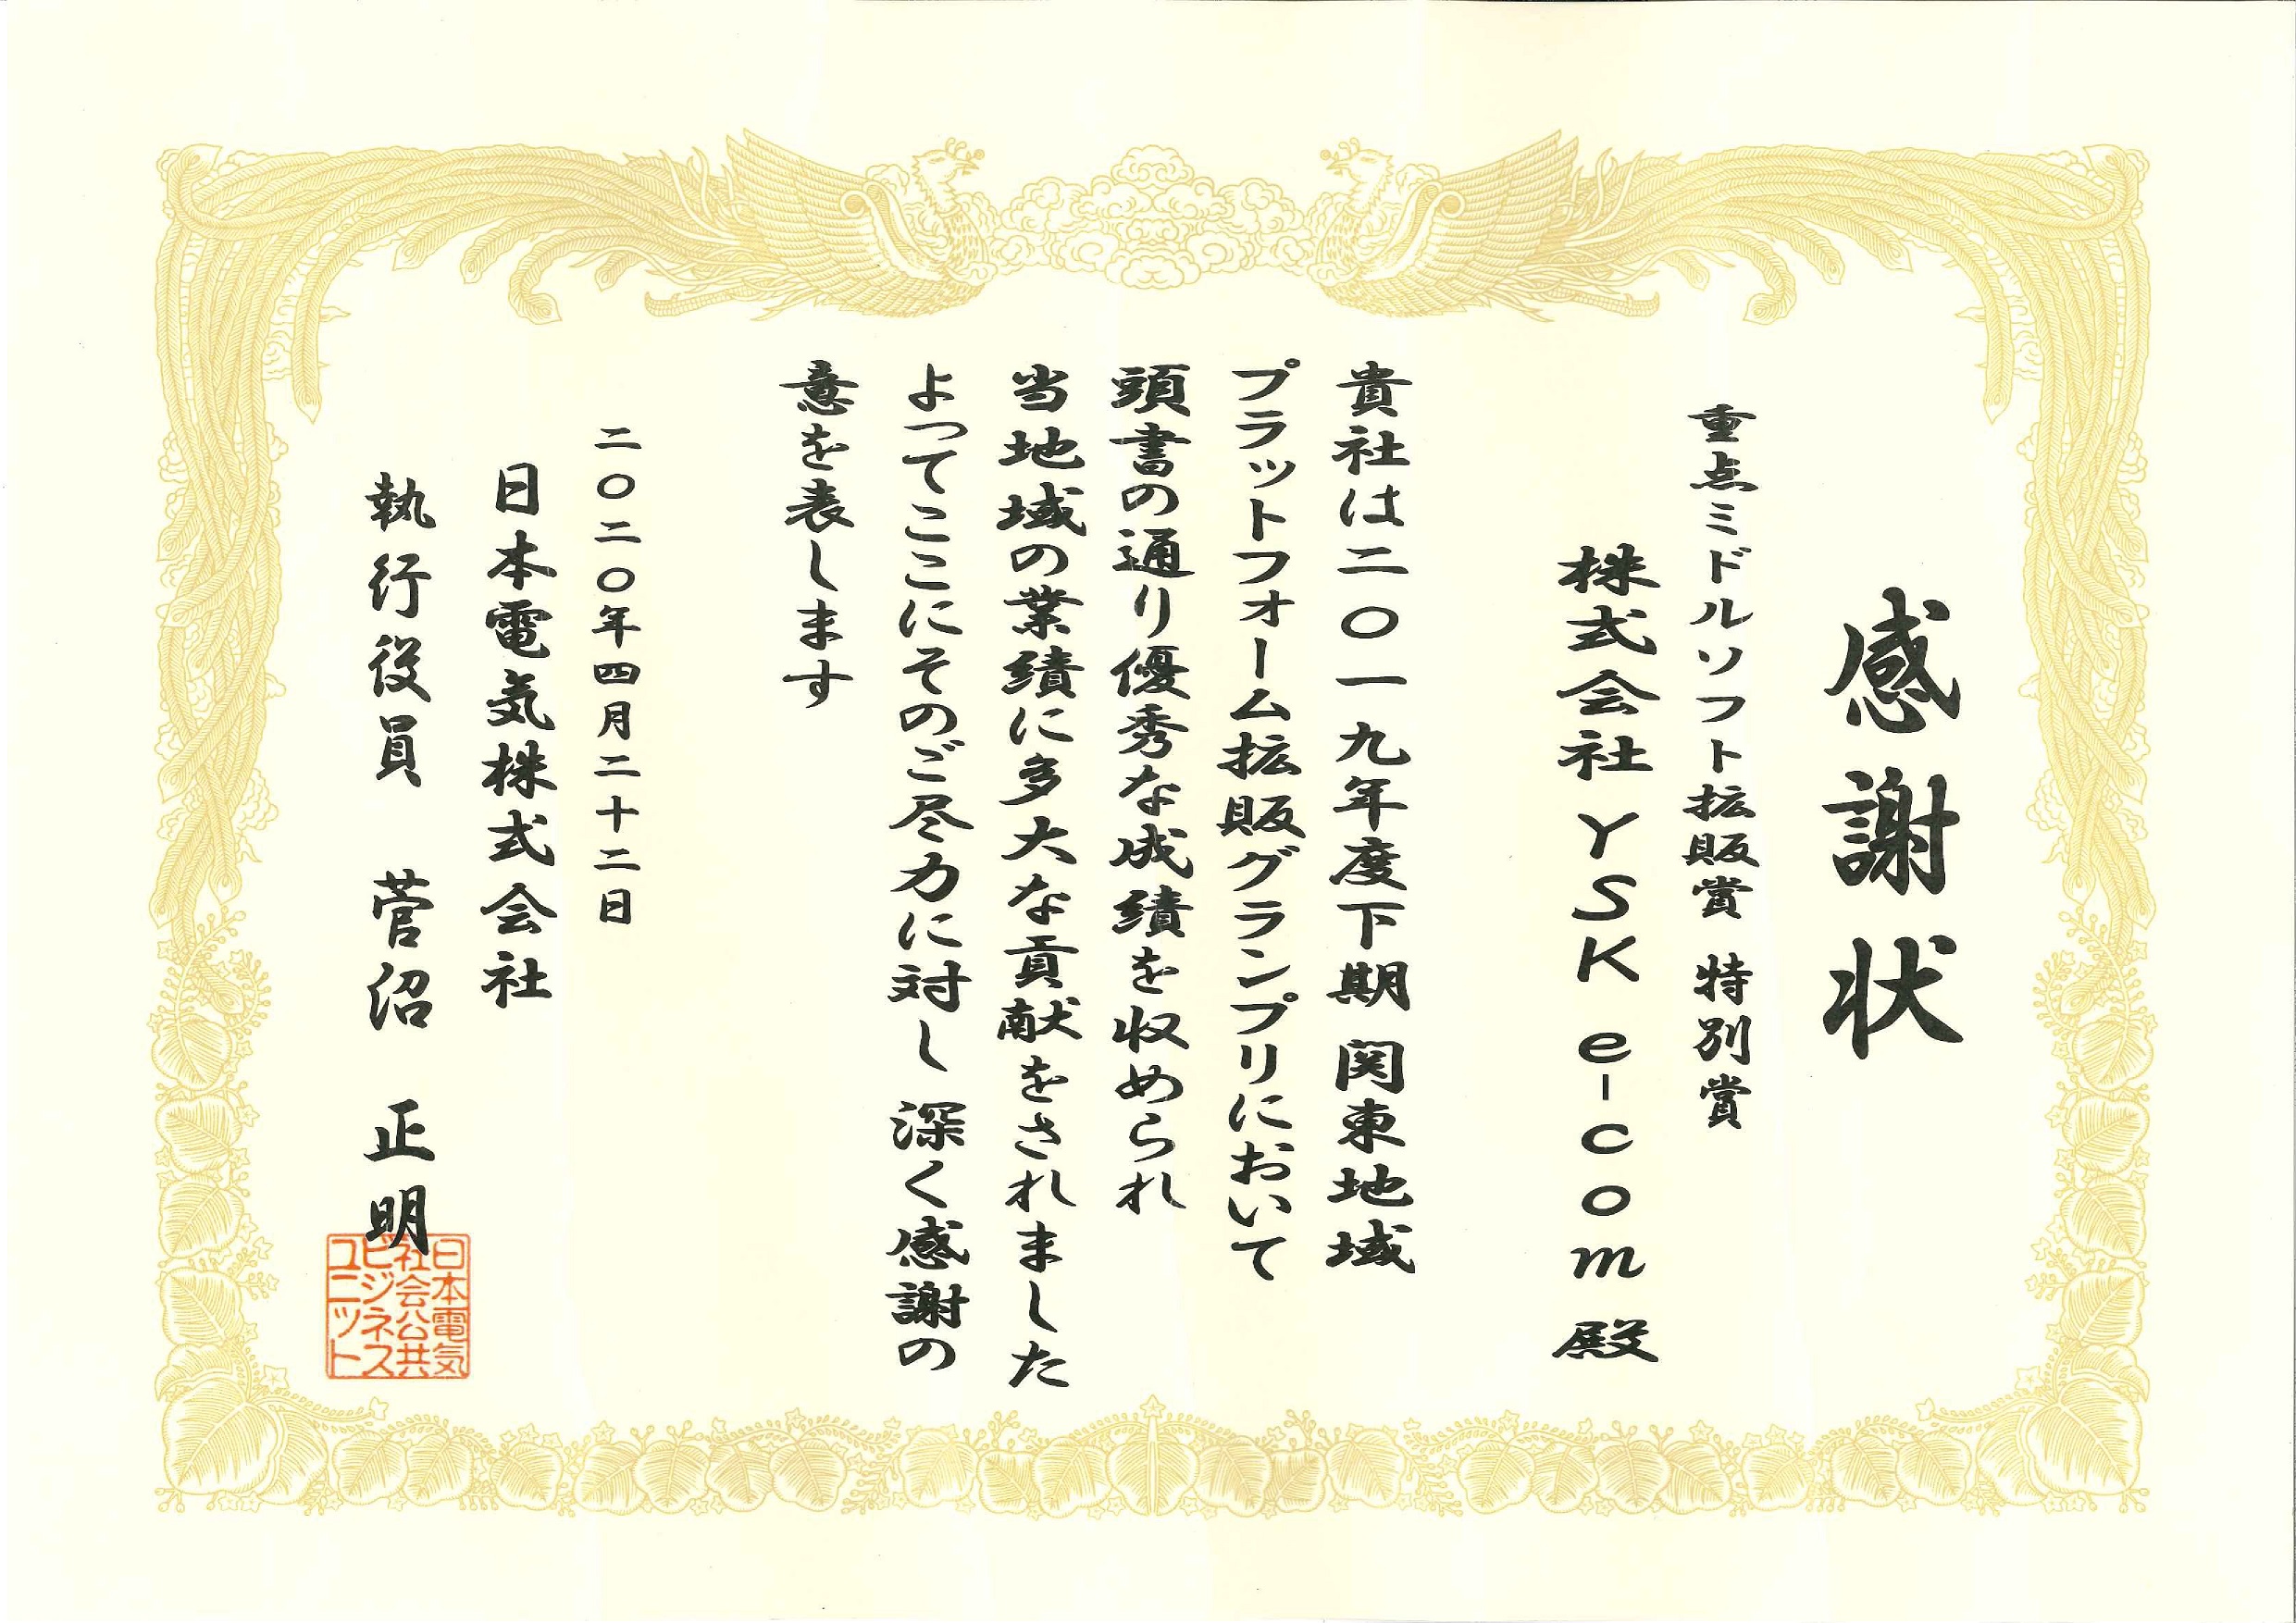 感謝状
重点ミドルソフト拡販賞 特別賞
株式会社YSK e-com殿
貴社は二〇一九年度下期 関東地域
プラットフォーム拡販グランプリにおいて
頭書の通り優秀な成績を収められ
当地域の業績に多大な貢献をされました
よってここにそのご尽力に対し 深く感謝の
意を表します
二〇二〇年四月二十二日
日本電気株式会社
執行役員 菅沼 正明
日本電気
社会公共
ビジネス
ユニット